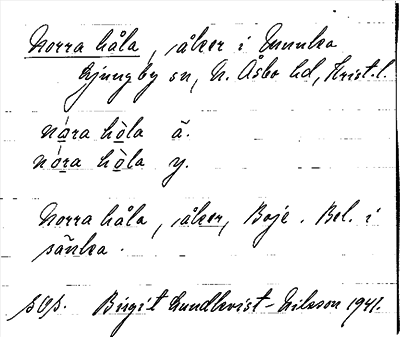 Norra håla, åker i Munka
Ljungby sn, N. Åsbo hd, Krist. l.
nára hòla ä.
nóra hòla y.
Norra håla, åker, Boje. Bel. i
sänka.
sOp. Birgit Lundkvist-Nilsson 1941.